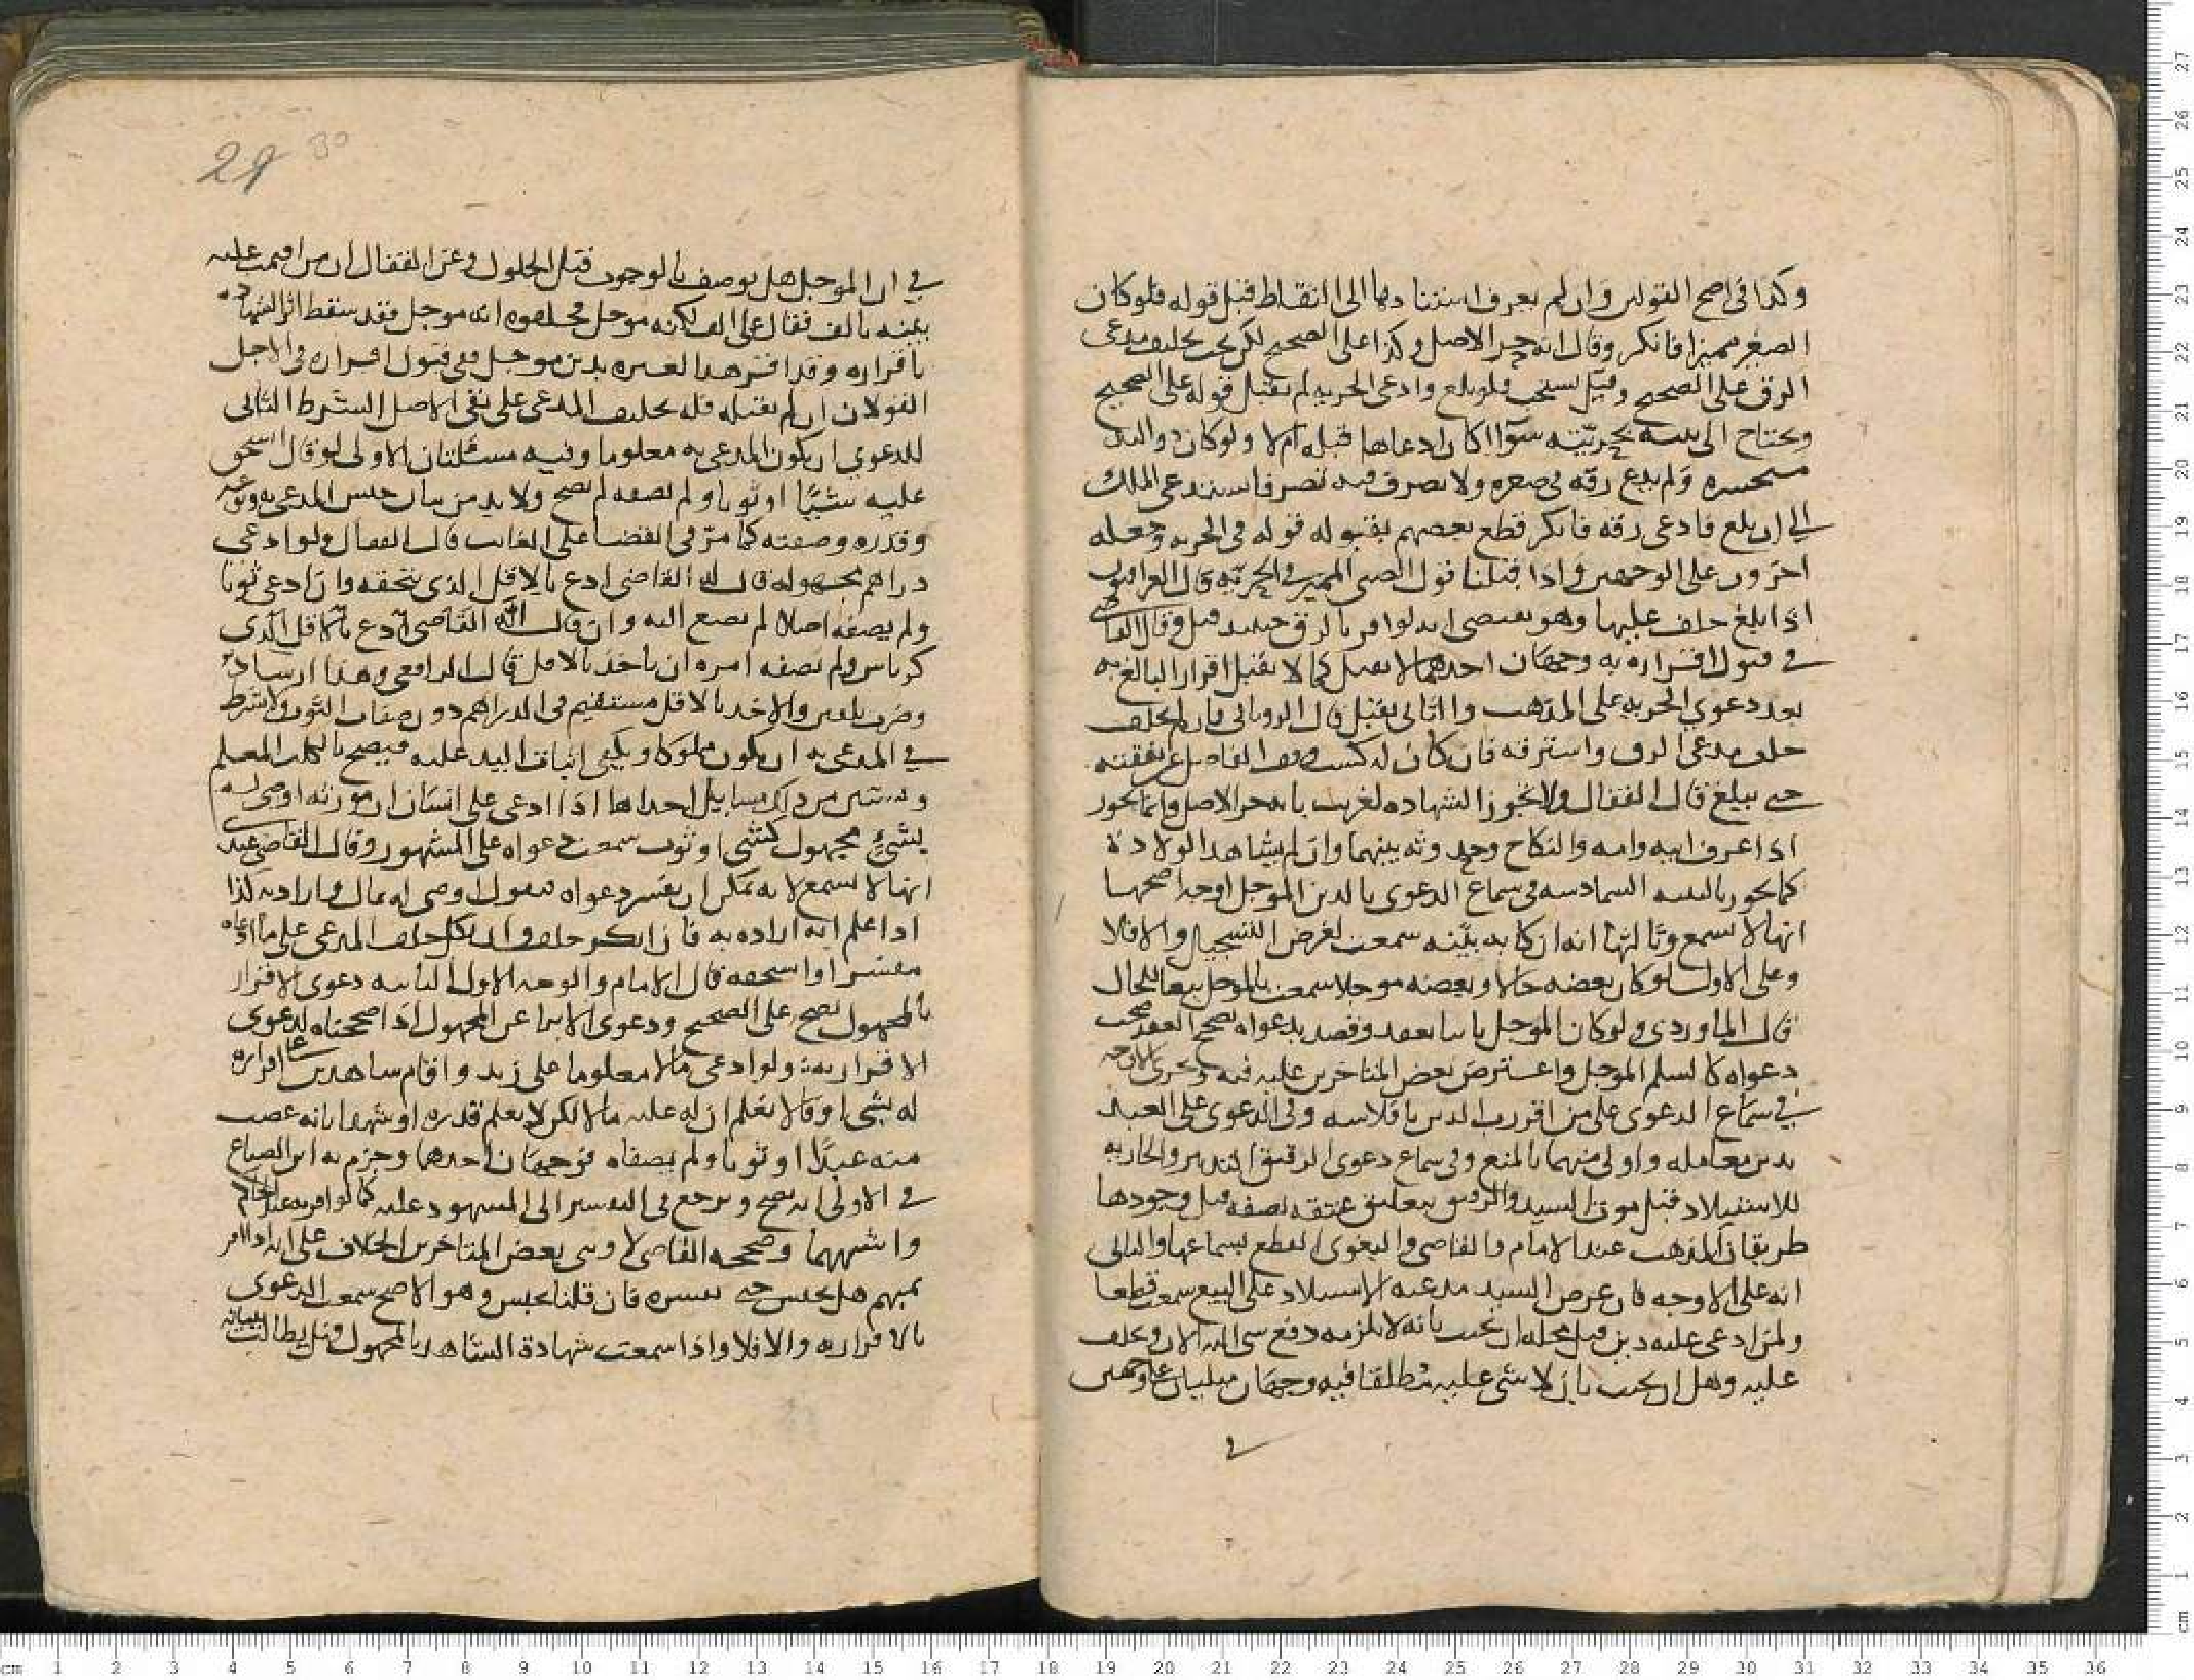 وكذا في اصح القولين وان لم يعرف استنادها الى التقاط قبل قوله فلو كان
الصغير مميزا فانكر وقال انه حر الاصل وكذا على الصحيح لكن تحليف مدعى
الرق على الصحيح وقيل يستحب فلو بلغ وادعى الحريه لم يقبل قوله على الصحيح
ويحتاج الى بينه بحريّته سوآا كان ادعاها قبله ام لا ولو كان
ولم يدع رقه في صغره ولا تصرف فيه تصرفا يستدعى الملك
الى ان بلغ فادعى رقه فانكر قطع بعضهم بقبوله قوله في الحريه وجعله
اخرون على الوجهين واذا قبلنا قول الصبى المميز في الحريّه قال العراقيون
اذا بلغ حلف عليها وهو يقتضى انه لو اقر بالرق حينيد قبل وقال القاضي
في قبول اقراره به وجهان احدهما لا يقبل كما لا يقبل اقرار البالغ به
بعد دعوي الحريه على المذهب والثانى يقبل قال الرويانى فان لم يحلف
حلف مدعى الرق واسترقه فان كان له كسب القاضى عن نفقته
حتى يبلغ قال القفال ولا تجوز الشهاده لغريب بانه حر الاصل وانما تجوز
اذا عرف ابيه وامه والنكاح وحدوثه بينهما وان لم يشاهد الولادة
كما يجوز بالبينه السادسه في سماع الدعوى بالدين الموجل اوجه اصحها
انها لا تسمع وثالثها انه ان كان به بيّنه سمعت لغرض التسجيل والا فلا
وعلى الاول لو كان بعضه حالا وبعضه موجلا سمعت بالموجل تبعا للحال
قال الماوردى ولو كان الموجل بعقد وقصد بدعواه تصحيح العقد صحت
دعواه كالسلم الموجل واعترض بعض المتاخرين عليه فيه وتجرى الاوجه
في سماع الدعوى على من اقر رب الدين بافلاسه وفي الدعوى على العبد
بدين معامله واولى منهما بالمنع وفي سماع دعوى الرقيق التدبير والجاريه
للاستيلاد قبل موت السيد والرقيق بتعليق عتقه بصفه قبل وجودها
طريقان المذهب عند الامام والقاضى والبغوى القطع بسماعها والثانى
انه على الاوجه فان عرض السيد مدعيه الاستيلاد على البيع سمعت قطعا
ولمن ادعى عليه دين قبل محله ان يجيب بانه لا يلزمه دفع شى اليه الان ويحلف
عليه وهل ان يجيب بان لا شى عليه مطلقا فيه وجهان مبنيان على وجهين
في
29 30
في ان الموجل هل يوصف بالوجوب قبل الحلول وعن القفال ان من اقيمت عليه
بينه بالف فقال على الف لكنه موجل انه موجل فقد سقط اثر الشهاده
باقراره وقد اقر هذا لغيره بدين موجل ففى قبول اقراره في الاجل
القولان ان لم نقبله فله تحليف المدعى على نفى الاجل الشرط الثانى
للدعوي ان يكون المدعى به معلوما وفيه مسئلتان الاولى لو قال استحق
عليه شيئًا او ثوبا ولم تصفه لم تصح ولا بد من بيان جنس المدعى به ونوعه
وقدره وصفته كما مرّ في القضا على الغائب قال القفال ولو ادعى
دراهم مجهوله قال له القاضى ادع بالاقل الذى تتحقه وان ادعى ثوبا
ولم يصفه اصلا لم يصغ اليه وان قال له القاضى ادع بالاقل الذى
كرباس ولم تصفه امره ان ياخذ بالاقل قال الرافعى وهذا ارشاد
والاخذ بالاقل مستقيم في الدراهم دون صفات الثوب ولا يشرط
في المدعى به ان يكون مملوكا ويكفى اثبات اليد عليه فيصح بالكلب المعلم
ويستثنى من ذلك مسايل احداها اذا ادعى على انسان ان مورثه اوصى له
بشئٍ مجهول كشى او ثوب سمعت دعواه على المشهور وقال القاضى عند
انها لا تسمع لانه يمكن ان يفسر دعواه فيقول اوصى له بمال واراد به كذا
اذا علم انه اراده به فان انكر حلف وان نكل حلف المدعى على ما ادعاه
مفسرا واستحقه قال الامام والوجه الاول الثانيه دعوى الاقرار
بالمجهول تصح على الصحيح ودعوى الابرا عن المجهول اذا صححناه كدعوى
الاقرار به ولو ادعى مالا معلوما على زيد واقام شاهدين على اقراره
له بشى او قالا نعلم ان له عليه مالا لكن لا نعلم قدره او شهدا بانه غصب
منه عبدًا او ثوبا ولم يصفاه فوجهان احدهما وجزم به ابن الصباغ
في الاولى انه يصح ويرجع في التفسير الى المشهود عليه كما لو اقر به عند الحاكم
واشهرهما وصححه القاضى لا وبنى بعض المتاخرين الخلاف على انه اذا اقر
بمبهم هل يحبس حتى يفسره فان قلنا يحبس وهو الاصح سمعت الدعوى
بالاقرار به والا فلا واذا سمعت شهادة الشاهد بالمجهول وقيل يطالب ببيانه